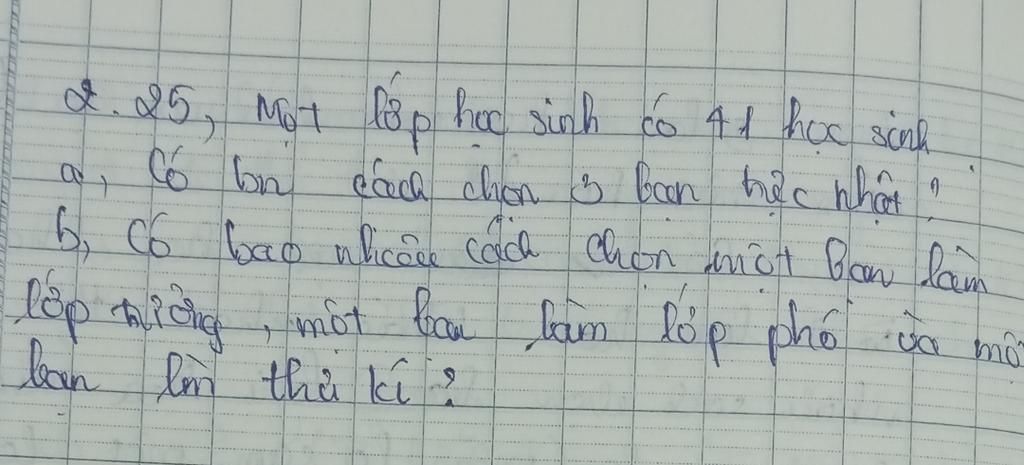 2.25, Một lớp học sinh có 41 học sinh
a, Có bn cách chọn 3 bạn trực nhật?
b, Có bao nhiêu cách chọn một bạn làm
lớp trưởng, một bạn làm lớp phó và mộ
bạn làm thư kí?